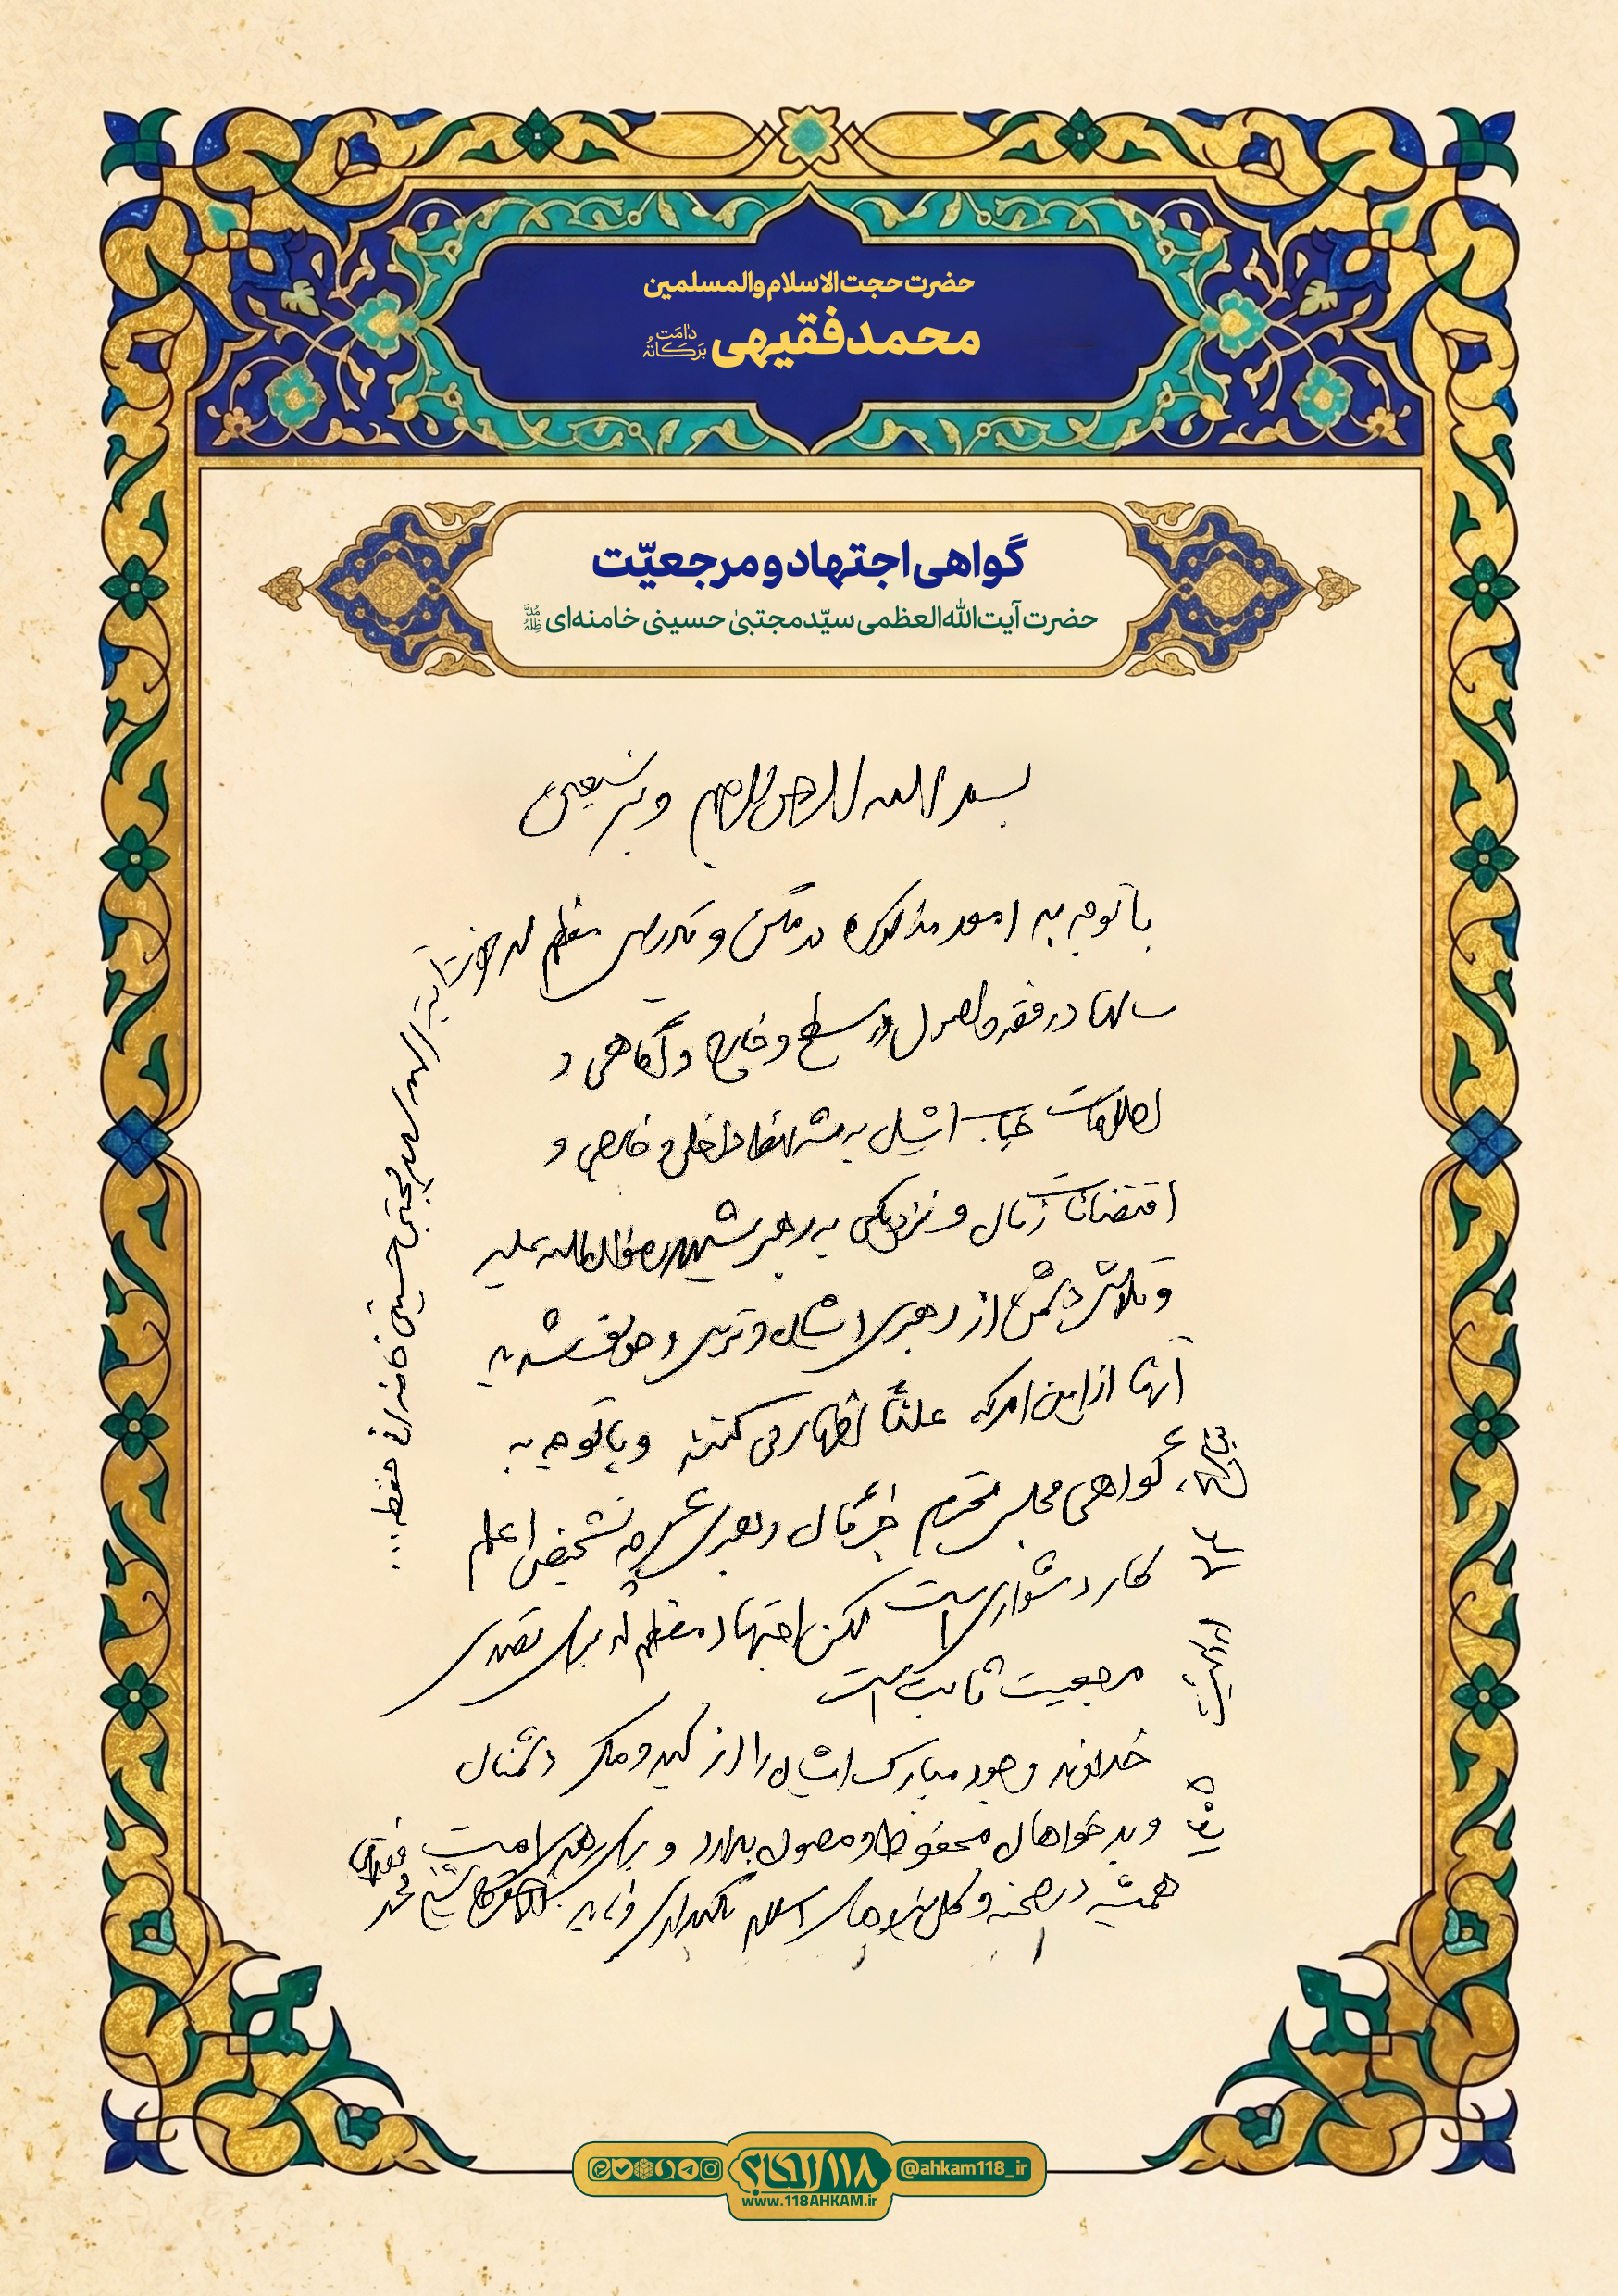 حضرت حجت الاسلام والمسلمین
محمد فقیهی دامَت بَرَکاتُه
گواهی اجتهاد و مرجعیّت
حضرت آیت‌الله‌العظمی سیّد مجتبیٰ حسینی خامنه‌ای مُدَّ ظِلُّه
بسم الله الرحمن الرحیم و به نستعین
با توجه به امور مذکوره در متن و تدریس معظم له حضرت آیة الله سید مجتبی حسینی خامنه ای حفظه ...
سالها در فقه و اصول در سطح و خارج و آگاهی و
اطلاعات جناب ایشان به داخلی و خارجی و
اقتضائات زمان و نزدیکی به رهبر شهید رضوان الله علیه
و تلاش دشمن از رهبری ایشان و ترس و خوف شدید
آنها از این امر که علناً اظهار می کنند و با توجه به
گواهی مجلس محترم خبرگان رهبری گرچه تشخیص اعلم
کار دشواری است لکن اجتهاد معظم له برای تصدی
مرجعیت ثابت است
خداوند وجود مبارک ایشان را از کید و مکر دشمنان
و بدخواهان محفوظ و مصون بدارد و برای رهبری امت
همیشه در صحنه و کل اسلام نگهداری فرماید محمد فقیهی
۱۱۸ احکام
@ahkam118_ir
www.118AHKAM.ir